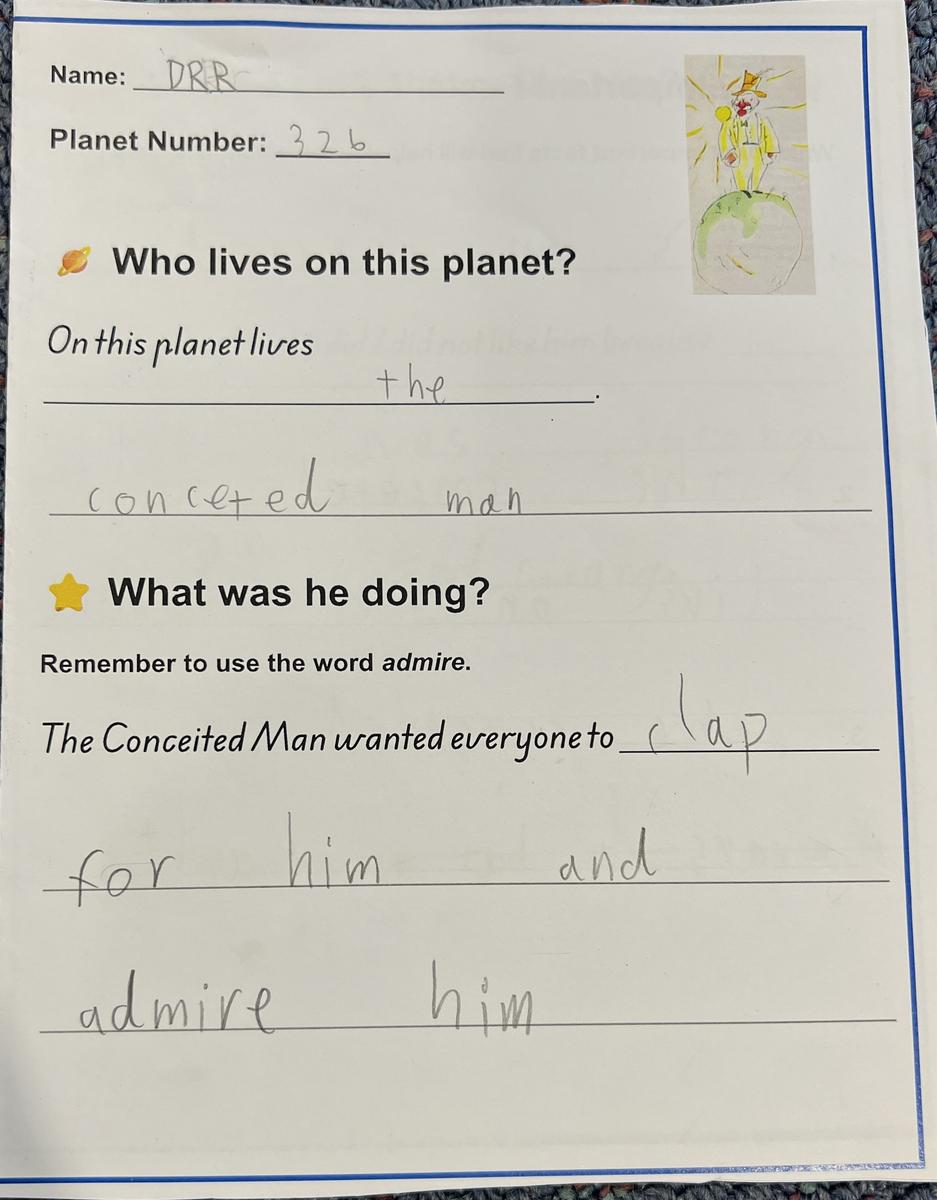 Name: DRR
Planet Number: 326
Who lives on this planet?
On this planet lives
the .
conceted man
What was he doing?
Remember to use the word admire.
The Conceited Man wanted everyone to clap
for him and
admire him